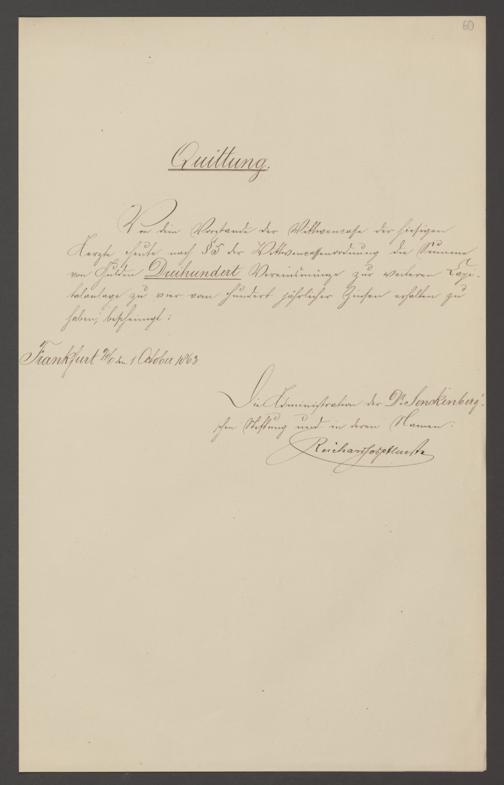 60
Quittung.
Von dem Vorstande der Wittwencasse der hiesigen
Aerzte heute nach § 5 der Wittwencassenordnung die Summe
von Gulden Dreihundert Vereinsmünze zur weiteren Capi-
talanlage zu vier vom Hundert jährlicher Zinsen erhalten zu
haben, bescheinigt:
Frankfurt a/M den 1 October 1863
Die Administration der Dr. Senckenberg'-
schen Stiftung und in deren Namen: